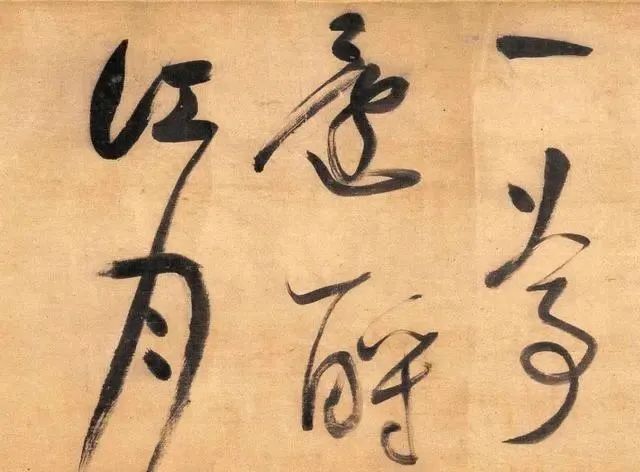 一尊
還酹
江月